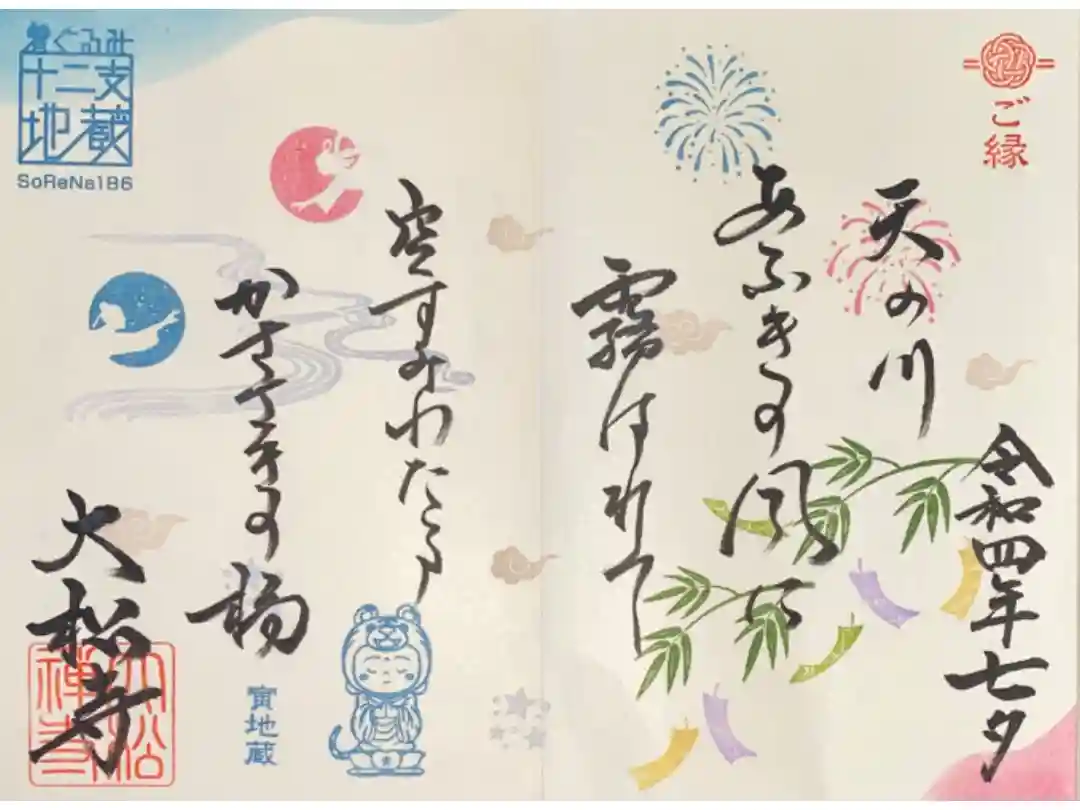 ご縁
令和四年七夕
天の川
あふきの風に
霧はれて
空すみわたる
かささきの橋
大松寺
寅地蔵
着ぐるみ
十二支
地蔵
大松
禅寺